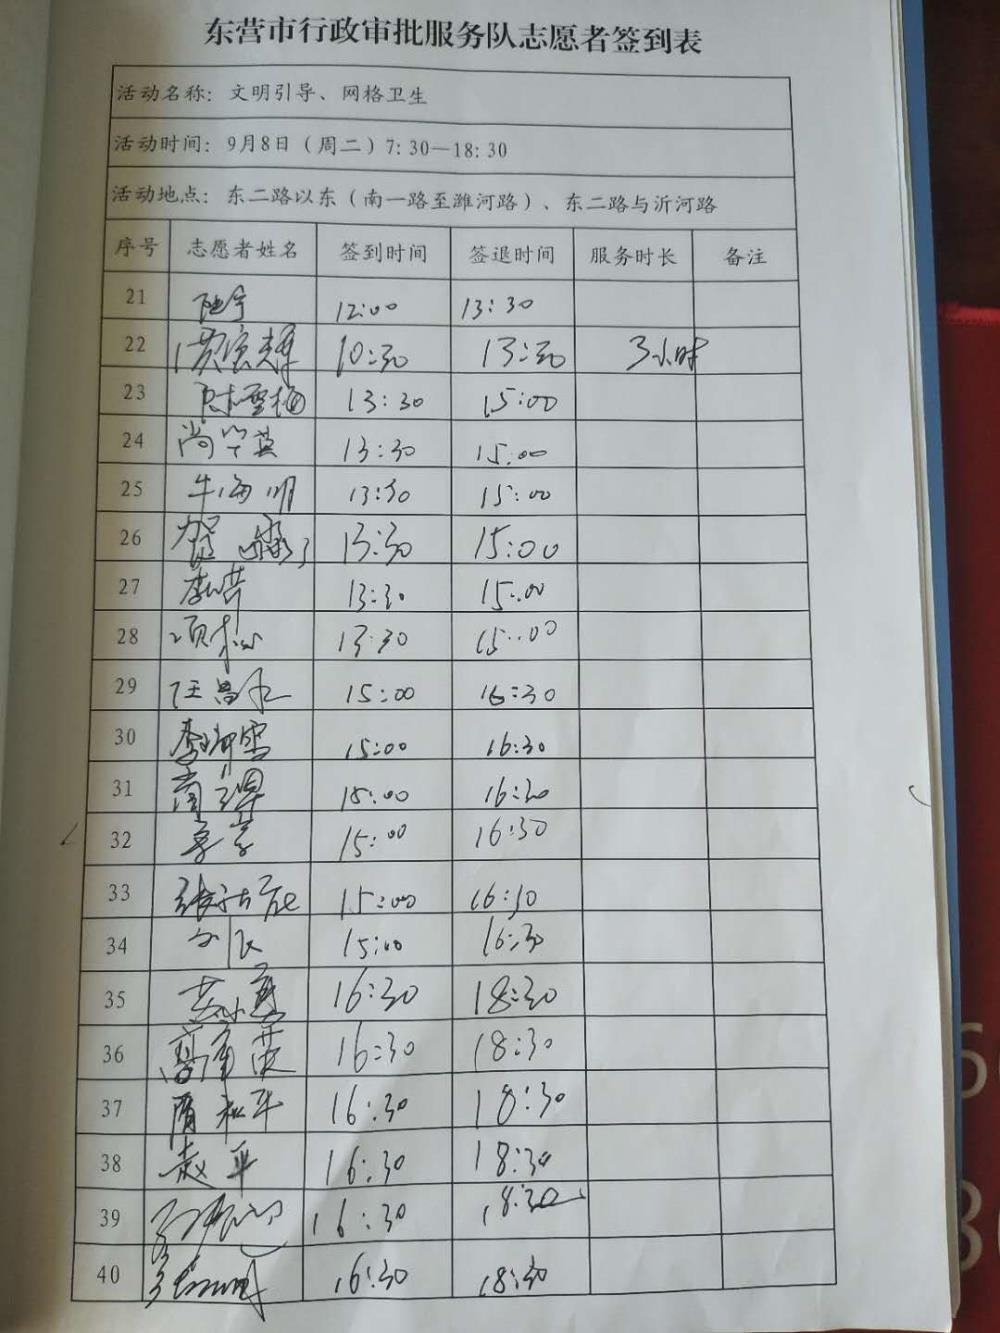 东营市行政审批服务队志愿者签到表
活动名称：文明引导、网格卫生
活动时间：9月8日（周二）7:30—18:30
活动地点：东二路以东（南一路至潍河路）、东二路与沂河路
序号 志愿者姓名 签到时间 签退时间 服务时长 备注
21 陆宇 12:00 13:30
22 10:30 13:30 3小时
23 陈雪梅 13:30 15:00
24 尚华英 13:30 15:00
25 牛海明 13:30 15:00
26 贺 13:30 15:00
27 13:30 15:00
28 项松 13:30 15:00
29 汪昌永 15:00 16:30
30 李瑞雪 15:00 16:30
31 15:00 16:30
32 15:00 16:30
33 15:00 16:30
34 15:00 16:30
35 16:30 18:30
36 16:30 18:30
37 隋松平 16:30 18:30
38 赵平 16:30 18:30
39 16:30 18:30
40 16:30 18:30